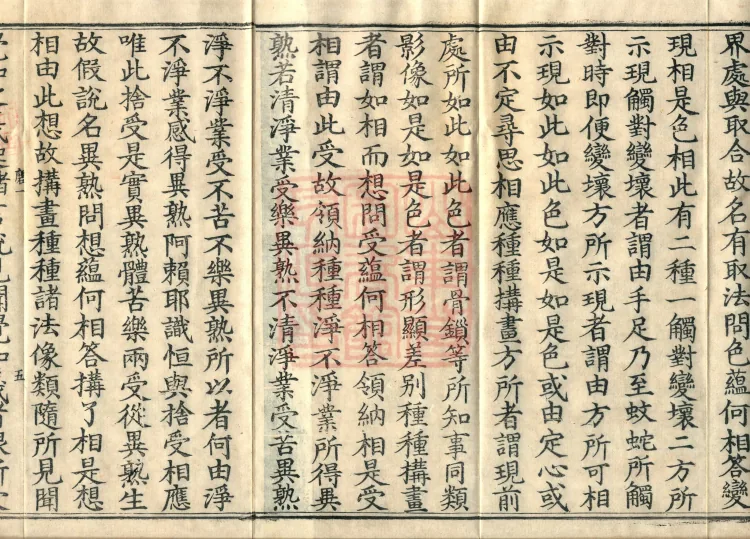 界處與取合故名有取法問色蘊何相答變
現相是色相此有二種一觸對變壞二方所
示現觸對變壞者謂由手足乃至蚊蛇所觸
對時即便變壞方所示現者謂由方所可相
示現如此如此色如是如是色或由定心或
由不定尋思相應種種搆畫方所者謂現前
處所如此如此色者謂骨鎖等所知事同類
影像如是如是色者謂形顯差別種種搆畫
者謂如相而想問受蘊何相答領納相是受
相謂由此受故領納種種淨不淨業所得異
熟若清淨業受樂異熟不清淨業受苦異熟
淨不淨業受不苦不樂異熟所以者何由淨
不淨業感得異熟阿賴耶識恒與捨受相應
唯此捨受是實異熟體苦樂兩受從異熟生
故假說名異熟問想蘊何相答搆了相是想
相由此想故搆畫種種諸法像類隨所見聞
五